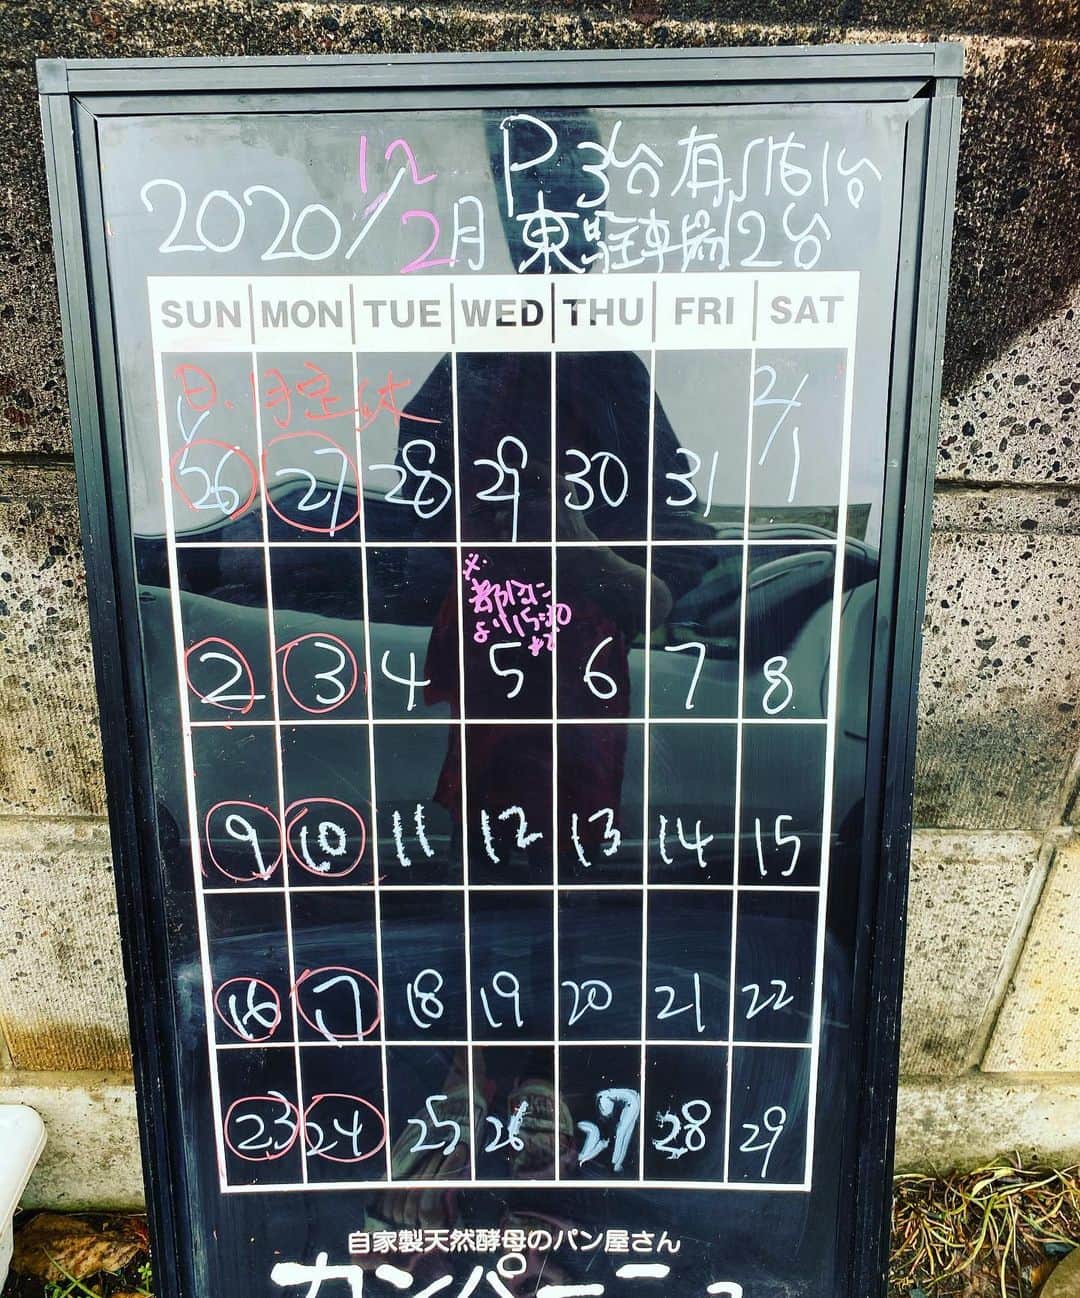 2020/1/2 2月
P 3台有
東駐車場2台
SUN MON TUE WED THU FRI SAT
日、月定休
2/1
26 27 28 29 30 31
※
都合に
より15:30
まで
2 3 4 5 6 7 8
9 10 11 12 13 14 15
16 17 18 19 20 21 22
23 24 25 26 27 28 29
自家製天然酵母のパン屋さん
カンパーニュ